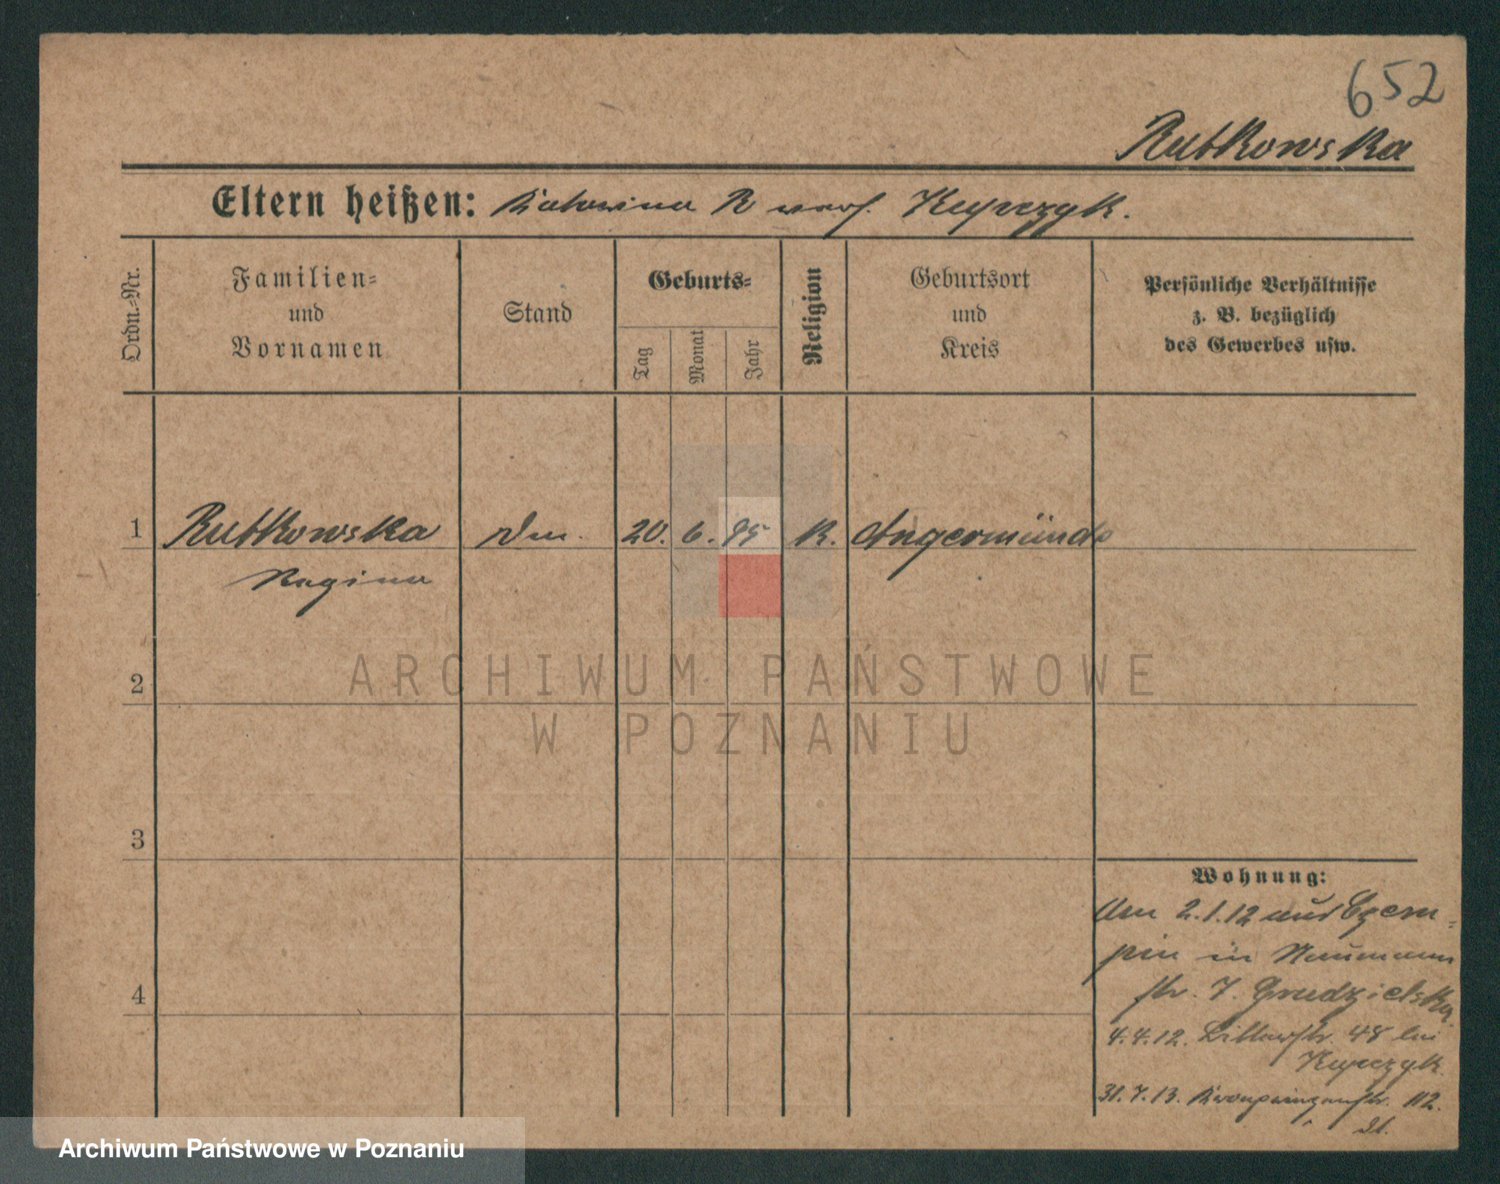 652
Rutkowska
Eltern heißen: Katarina R verh. Kupczyk.
Ordn.-Nr.
Familien-
und
Vornamen
Stand
Geburts-
Tag
Monat
Jahr
Religion
Geburtsort
und
Kreis
Persönliche Verhältnisse
z. B. bezüglich
des Gewerbes usw.
1 Rutkowska 20. 6. 95 K. Angermünde
Regina
2
3
4
Wohnung:
Am 2.1.12 aus Czem-
pin in Naumann
str. 7. Grudzielska
4.4.12. 48 bei
Kupczyk.
31.7.13. Kronprinzenstr. 112.
ARCHIWUM PAŃSTWOWE
W POZNANIU
Archiwum Państwowe w Poznaniu